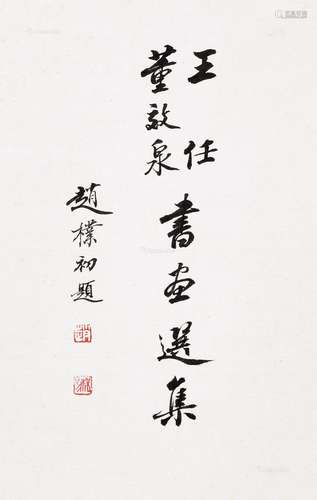 王任
董效泉
書画選集
趙樸初題